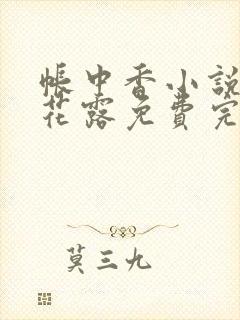 帳中香小說
花露免費完
莫三九